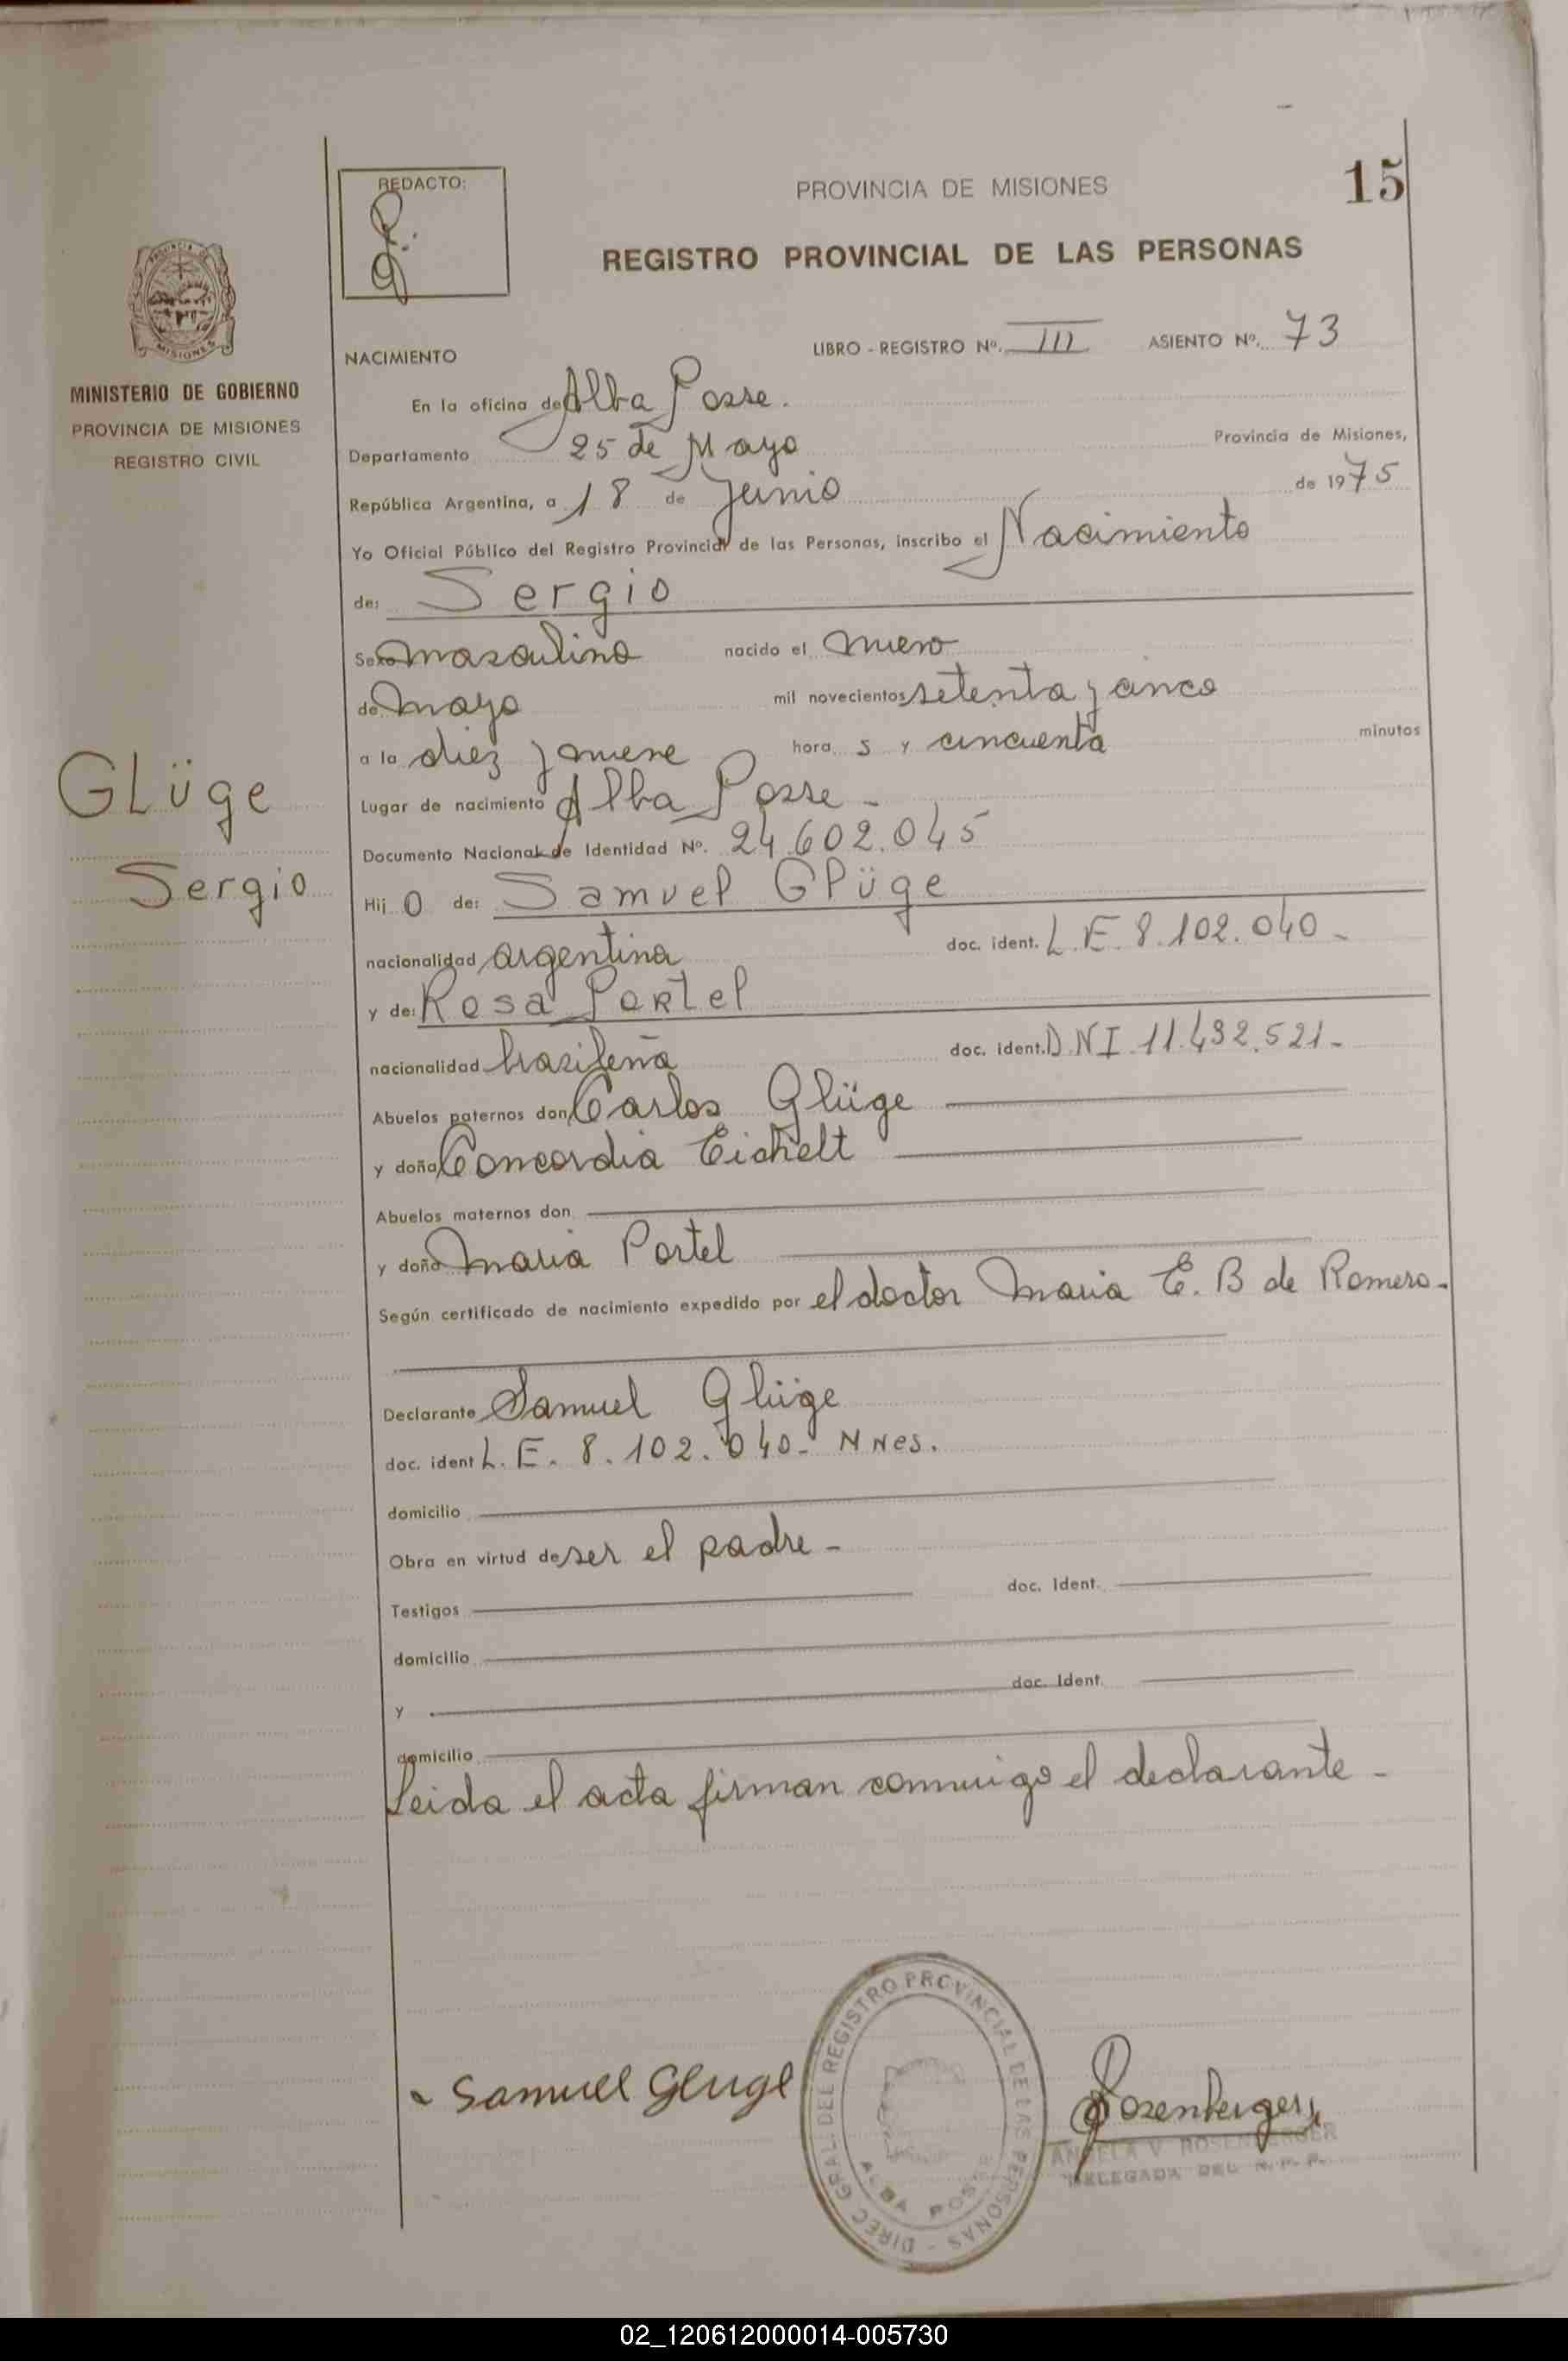 15
REDACTO:
PROVINCIA DE MISIONES
REGISTRO PROVINCIAL DE LAS PERSONAS
PROVINCIA DE
MISIONES
MINISTERIO DE GOBIERNO
PROVINCIA DE MISIONES
REGISTRO CIVIL
LIBRO - REGISTRO Nº. III ASIENTO Nº. 73
NACIMIENTO
En la oficina de Alba Posse.
Departamento 25 de Mayo Provincia de Misiones,
República Argentina, a 18 de Junio de 1975
Yo Oficial Público del Registro Provincial de las Personas, inscribo el Nacimiento
de: Sergio
Sexo masculino nacido el nueve
de mayo mil novecientos setenta y cinco
a la diez y nueve hora s y cincuenta minutos
GLüge
Lugar de nacimiento Alba Posse -
Documento Nacional de Identidad Nº. 24.602.045
Sergio
Hij o de: Samuel Glüge
nacionalidad argentina doc. ident. L.E. 8.102.040 -
y de: Rosa Portel
nacionalidad brasileña doc. ident. D.N.I. 11.432.521 -
Abuelos paternos don Carlos Glüge
y doña Concordia Eichelt
Abuelos maternos don
y doña Maria Portel
Según certificado de nacimiento expedido por el doctor Maria E. B de Romero -
Declarante Samuel Glüge
doc. ident L. E. 8.102.040 - Mnes.
domicilio
Obra en virtud de ser el padre -
Testigos doc. Ident.
domicilio
y doc. Ident.
domicilio
Leida el acta firman conmigo el declarante -
Samuel Gluge
Rosenberger
DIREC GRAL. DEL REGISTRO PROVINCIAL DE LAS PERSONAS -
ALBA POSSE
ANGELA V. ROSENBERGER
DELEGADA DEL R. P. P.
02_120612000014-005730